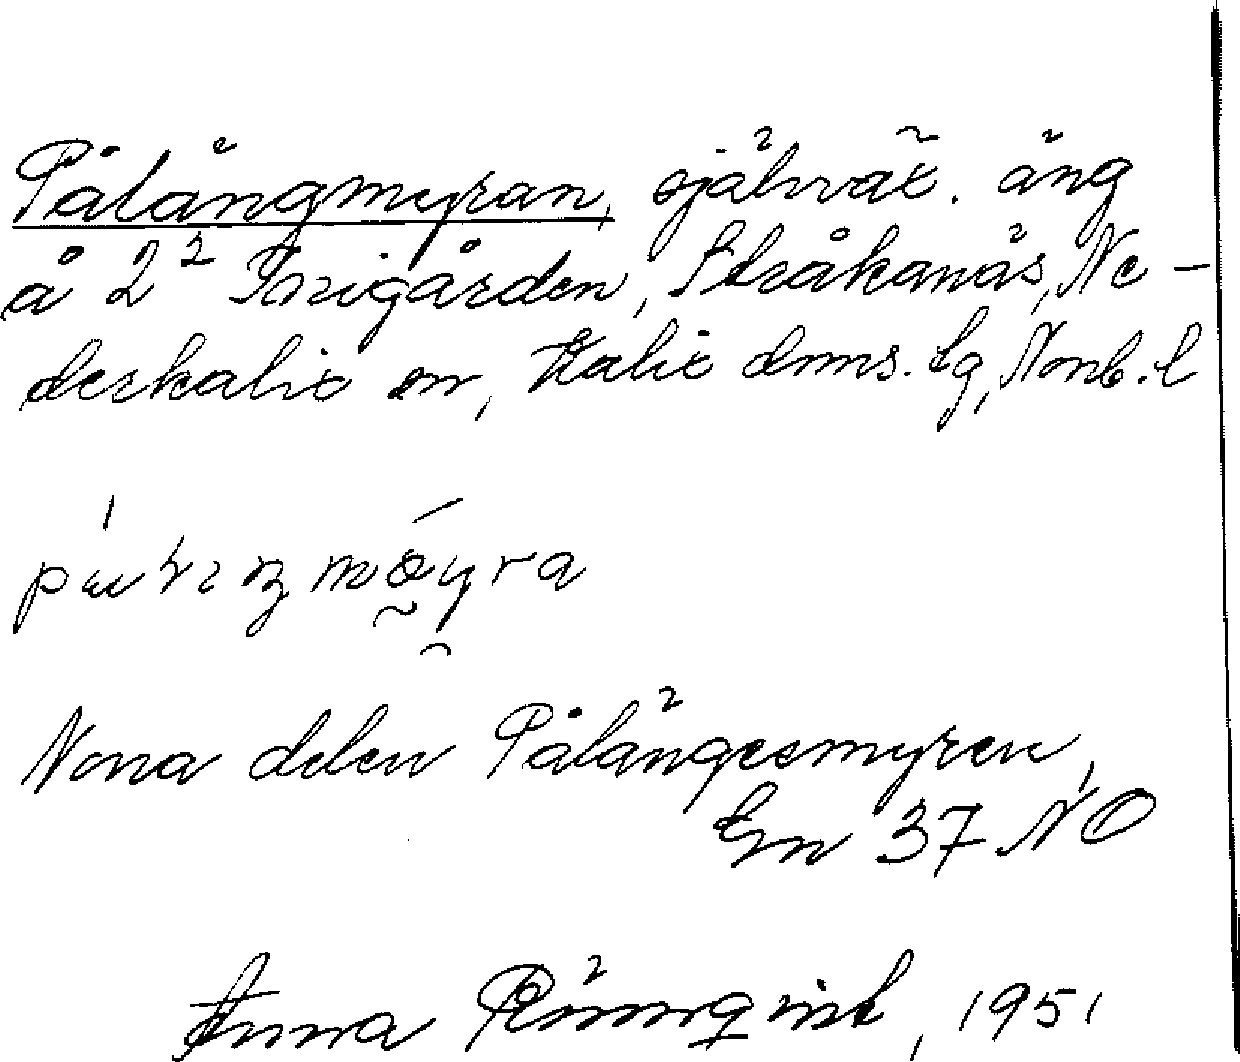 Pålängmyran, självväx. äng
å 2² Inigården, Stråkanäs, Ne-
derkalix sn, Kalix doms. lg, Norrb. l
Norra delen Pålängesmyren,
Gn 37 NO
Anna Rönnqvist, 1951